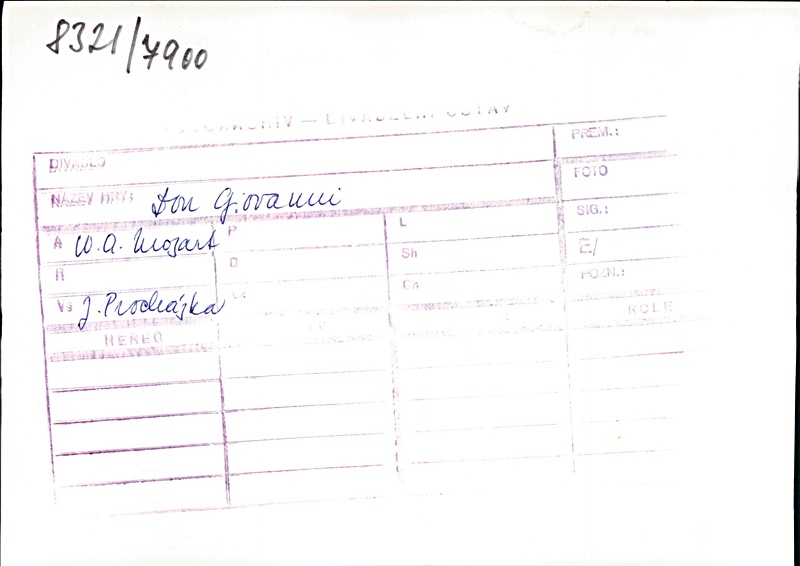 8321/7900
FOTOARCHIV — DIVADELNÍ ÚSTAV
DIVADLO
PREM.:
NÁZEV HRY: Don Giovanni
FOTO
A W. A. Mozart
P
L
SIG.:
R
D
Sh
Č/
Vs J. Procházka
Ch
POZN.:
HEREC
ROLE